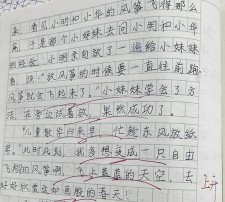 来，看见小明和小华的风筝飞得那么
高，于是那个小妹妹去问小明和小华
的经验，小明亲自放了一遍给小妹妹
看，说：“放风筝的时候要一直往前跑，
风筝就会飞起来了。”小妹妹学会了方
法，在旁边试着放，果然成功了。
“儿童散学归来早，忙趁东风放纸
鸢。”此时此刻，我多想变成一只自由
飞翔的风筝啊，飞上蓝蓝的天空，去
好好欣赏这如画般的春天！
上升